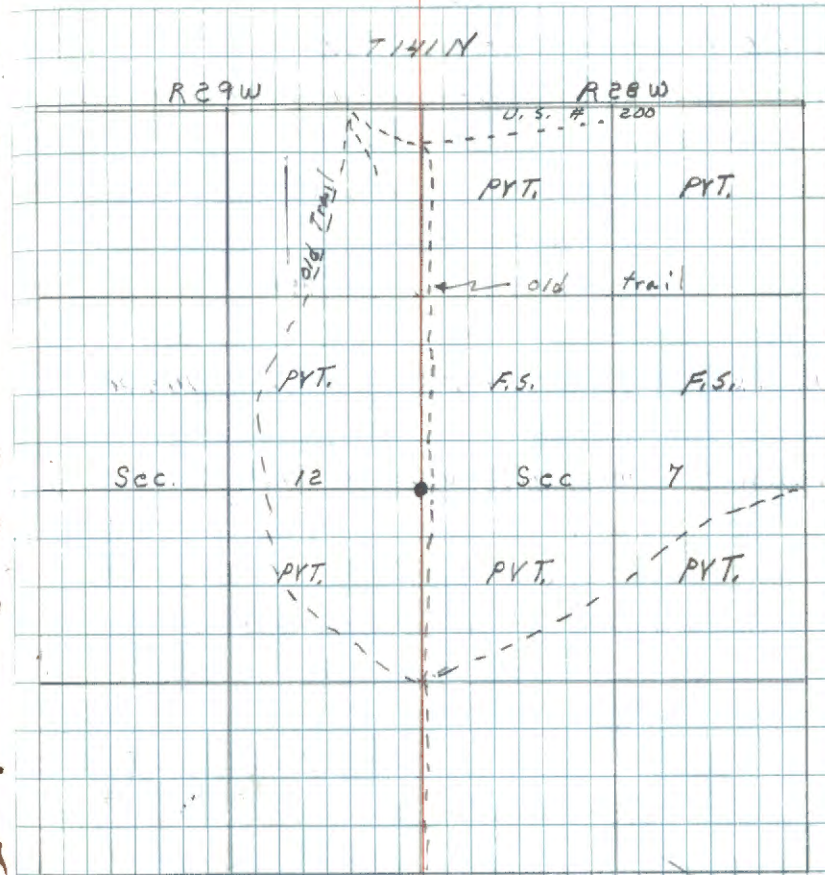 T141N
R29W R28W
U.S. # 200
PVT. PVT.
Old Trail
old trail
PVT. F.S. F.S.
Sec. 12 Sec 7
PVT. PVT. PVT.